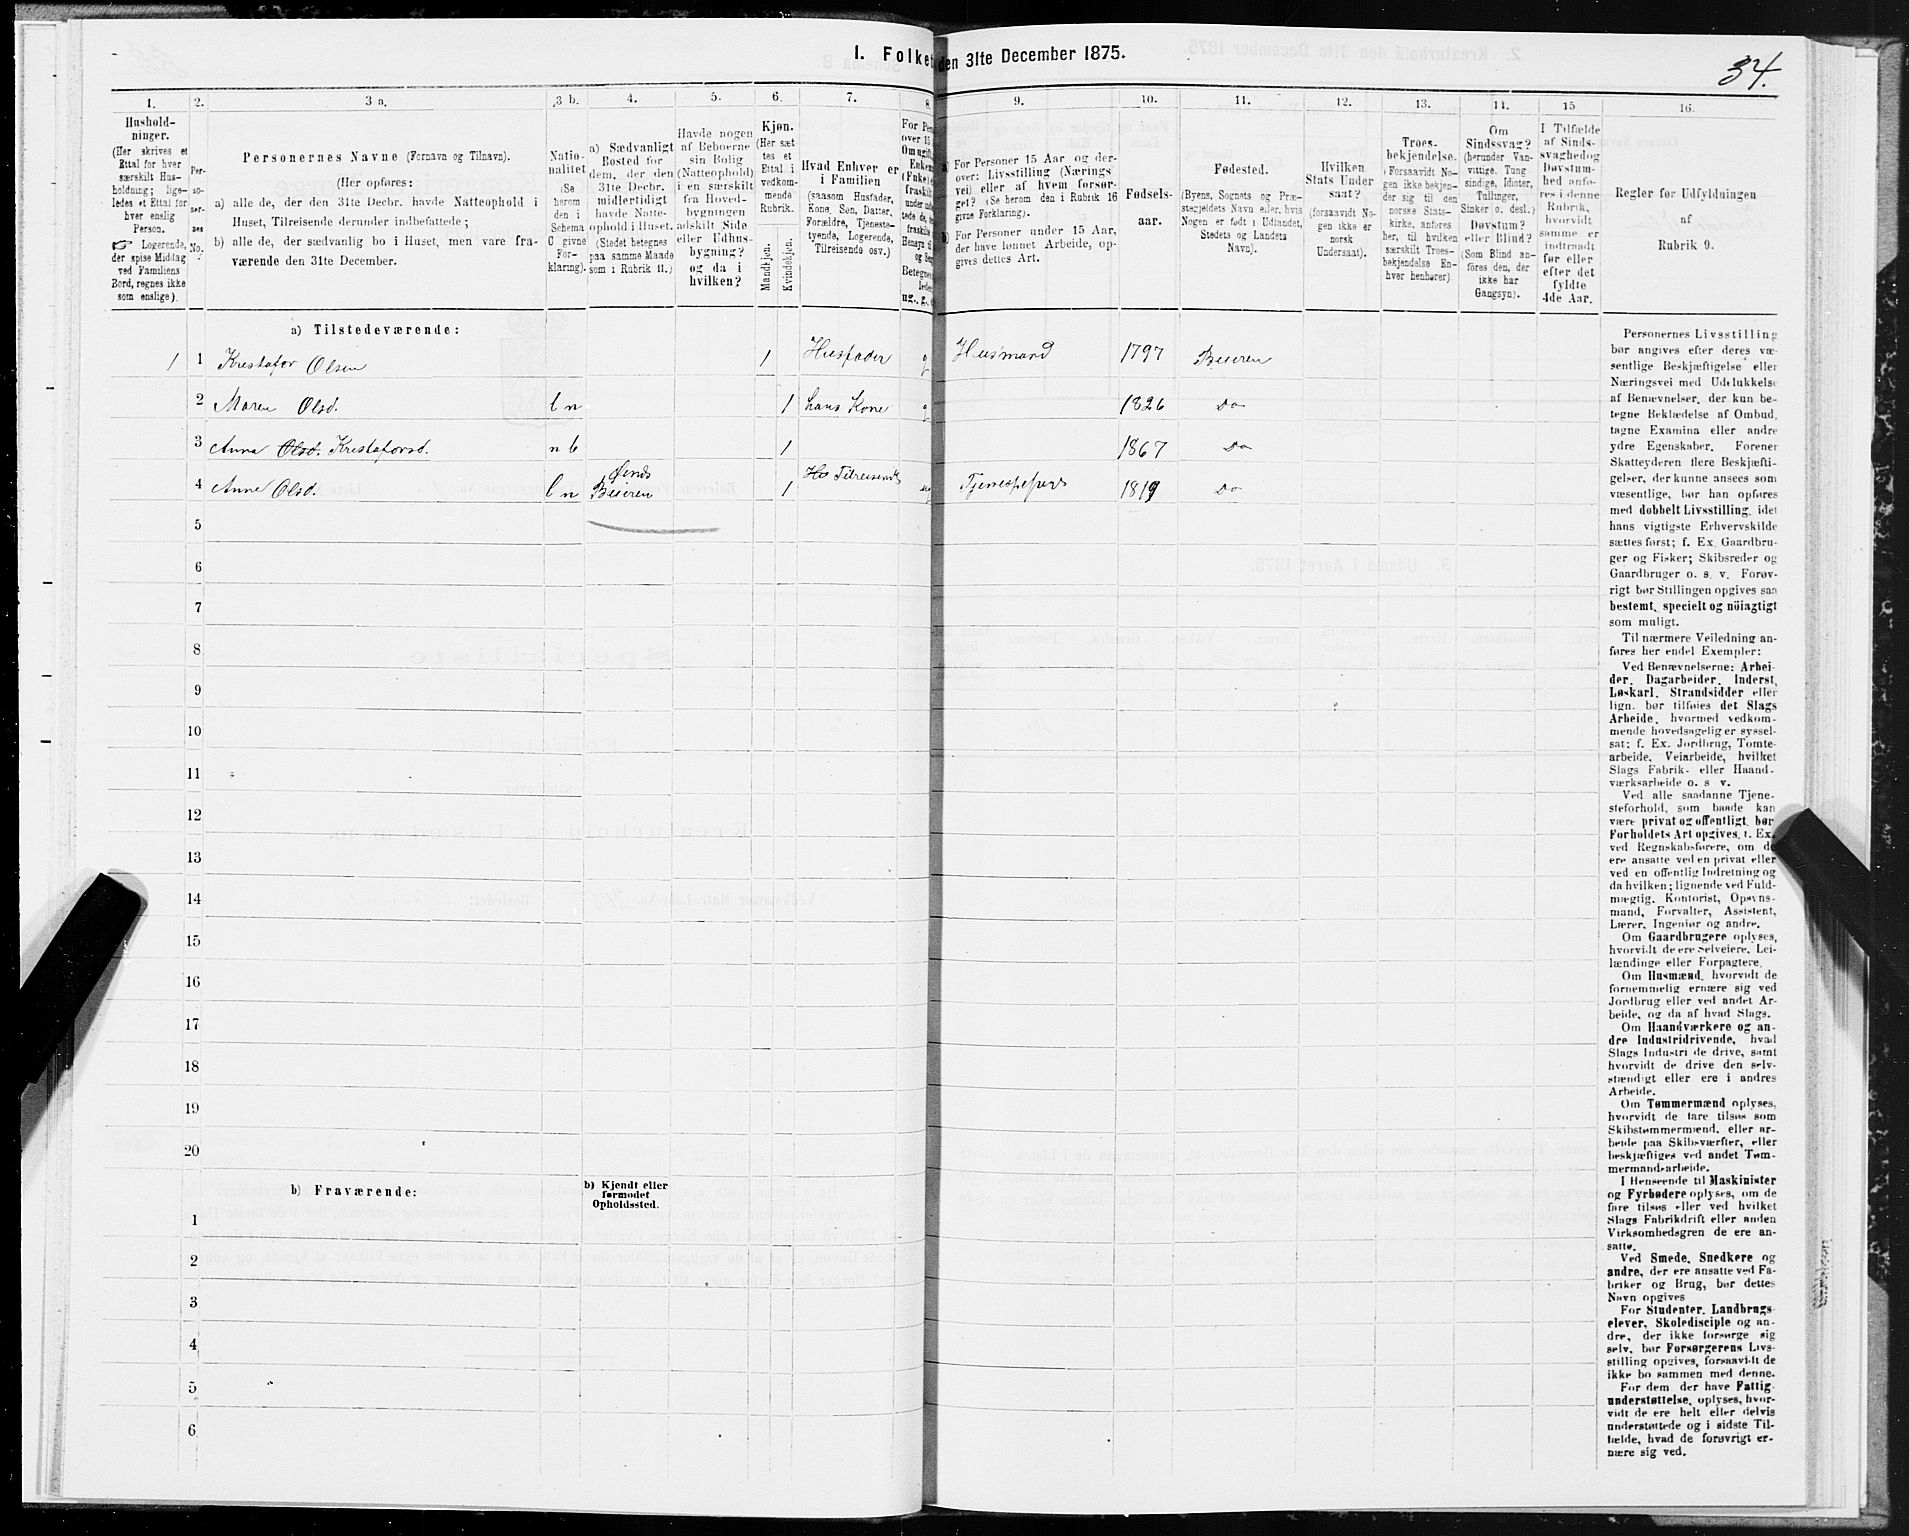 I. Folket den 31te December 1875.
34.
1. 2. 3 a. 3 b. 4. 5. 6. 7. 8. 9. 10. 11. 12. 13. 14. 15 16.
Hushold-
ninger.
(Her skrives et
Ettal for hver
særskilt Hus-
holdning; lige-
ledes et Ettal for
hver enslig
Person.
☞ Logerende,
der spise Middag
ved Familiens
Bord, regnes ikke
som enslige).
Per-
so-
ner-
nes
No.
Personernes Navne (Fornavn og Tilnavn).
(Her opføres:
a) alle de, der den 31te Decbr. havde Natteophold i
Huset, Tilreisende derunder indbefattede;
b) alle de, der sædvanlig bo i Huset, men vare fra-
værende den 31te December.
Natio-
nalitet
(Se
herom
den i
Schema
C givne
For-
klaring).
a) Sædvanligt
Bosted for
dem, der den
31te Decbr.
midlertidigt
havde Natte-
ophold i Huset.
(Stedet betegnes
paa samme Maade
som i Rubrik 11.)
Havde nogen
af Beboerne
sin Bolig
(Natteophold)
i en særskilt
fra Hoved-
bygningen
adskilt Side
eller Udhus-
bygning?
og da i
hvilken?
Kjøn.
(Her sæt
tes et
Ettal i
vedkom-
mende
Rubrik.
Mandkjøn.
Kvindekjøn.
Hvad Enhver er
i Familien
(saasom Husfader,
Kone, Søn, Datter,
Forældre, Tjeneste-
tyende, Logerende,
Tilreisende osv.)
For Pe
over 15
Om ugift
Enkem
(Enke) e
fraskilt
a) For Personer 15 Aar og der-
over: Livsstilling (Nærings
vei) eller af hvem forsør-
get? (Se herom den i Rubrik 16
givne Forklaring).
b) For Personer under 15 Aar,
der have lønnet Arbeide, op-
gives dettes Art.
Fødsels-
aar.
Fødested.
(Byens, Sognets og Præ-
stegjeldets Navn eller, hvis
Nogen er født i Udlandet,
Stedets og Landets
Navn).
Hvilken
Stats Under
saat?
(forsaavidt No-
gen ikke er
norsk
Undersaat).
Troes-
bekjendelse.
(Forsaavidt No-
gen ikke bekjen-
der sig til den
norske Stats-
kirke, anføres
her, til hvilken
særskilt Troes-
bekjendelse En-
hver henhører).
Om
Sindssvag?
(herunder Van-
vittige, Tung-
sindige, Idioter,
Tullinger,
Sinker o. desl.)
Døvstum?
eller Blind?
(Som Blind an-
føres den, der
ikke har
Gangsyn).
I Tilfælde
af Sinds-
svaghed og
Døvstum-
hed anfø-
res i denne
Rubrik,
hvorvidt
samme er
indtraadt
før eller
efter det
fyldte
4de Aar.
Regler for Udfyldningen
af
Rubrik 9.
a) Tilstedeværende:
1 1 Krestafor Olsen 1 Husfader g Husmand 1797 Beieren
2 Maren Olsd. b n 1 hans Kone g 1826 Do
3 Anna Olsd. Krestaforsd. n b 1 1867 Do
4 Anne Olsd. b n Beieren 1 Tilreisende ug 1819 Do
5
6
7
8
9
10
11
12
13
14
15
16
17
18
19
20
b) Fraværende:
b) Kjendt eller
formodet
Opholdssted.
1
2
3
4
5
6
Personernes Livsstilling
bør angives efter deres væ-
sentlige Beskjæftigelse eller
Næringsvei med Udelukkelse
af Benævnelser, der kun be-
tegne Beklædelse af Ombud,
tagne Examina eller andre
ydre Egenskaber. Forener
Skatteyderen flere Beskjæfti-
gelser, der kunne ansees som
væsentlige, bør han opføres
med dobbelt Livsstilling, idet
hans vigtigste Erhvervskilde
sættes først; f. Ex. Gaardbru-
ger og Fisker; Skibsreder og
Gaardbruger o. s. v. Forøv-
rigt bør Stillingen opgives saa
bestemt, specielt og nöiagtigt
som muligt.
Til nærmere Veiledning an-
føres her endel Exempler:
Ved Benævnelserne: Arbei-
der, Dagarbeider, Inderst,
Løskarl, Strandsidder eller
lign. bør tilføies det Slags
Arbeide, hvormed vedkom-
mende hovedsagelig er syssel-
sat; f. Ex. Jordbrug, Tomte-
arbeide, Veiarbeide, hvilket
Slags Fabrik- eller Haand-
værksarbeide o. s v.
Ved alle saadanne Tjene-
steforhold, som baade kan
være privat og offentligt, bør
Forholdets Art opgives, f. Ex.
ved Regnskabsførere, om de
ere ansatte ved en privat eller
ved en offentlig Indretning og
da hvilken; lignende ved Fuld-
mægtig, Kontorist, Opsyns-
mand, Forvalter, Assistent,
Lærer, Ingeniør og andre.
Om Gaardbrugere oplyses,
hvorvidt de ere Selveiere, Lei-
lændinge eller Forpagtere.
Om Husmænd, hvorvidt de
fornemmelig ernære sig ved
Jordbrug eller ved andet Ar-
beide, og da af hvad Slags.
Om Haandværkere og an-
dre Industridrivende, hvad
Slags Industri de drive, samt
hvorvidt de drive den selv-
stændigt eller ere i andres
Arbeide.
Om Tømmermænd oplyses,
hvorvidt de fare tilsøs som
Skibstømmermænd, eller ar-
beide paa Skibsværfter, eller
beskjæftiges ved andet Tøm-
mermandsarbeide.
I Henseende til Maskinister
og Fyrbødere oplyses, om de
fare tilsøs eller ved hvilket
Slags Fabrikdrift eller anden
Virksomhedsgren de ere an-
satte.
Ved Smede, Snedkere og
andre, der ere ansatte ved Fa-
briker og Brug, bør dettes
Navn opgives
For Studenter, Landbrugs-
elever, Skoledisciple og an-
dre, der ikke forsørge sig
selv, bør Forsørgerens Livs-
stilling opgives, forsaavidt de
ikke bo sammen med denne.
For dem, der have Fattig-
understøttelse, oplyses, hvor-
vidt de ere helt eller delvis
understøttede og i sidste Til-
fælde, hvad de forøvrigt er-
nære sig ved.